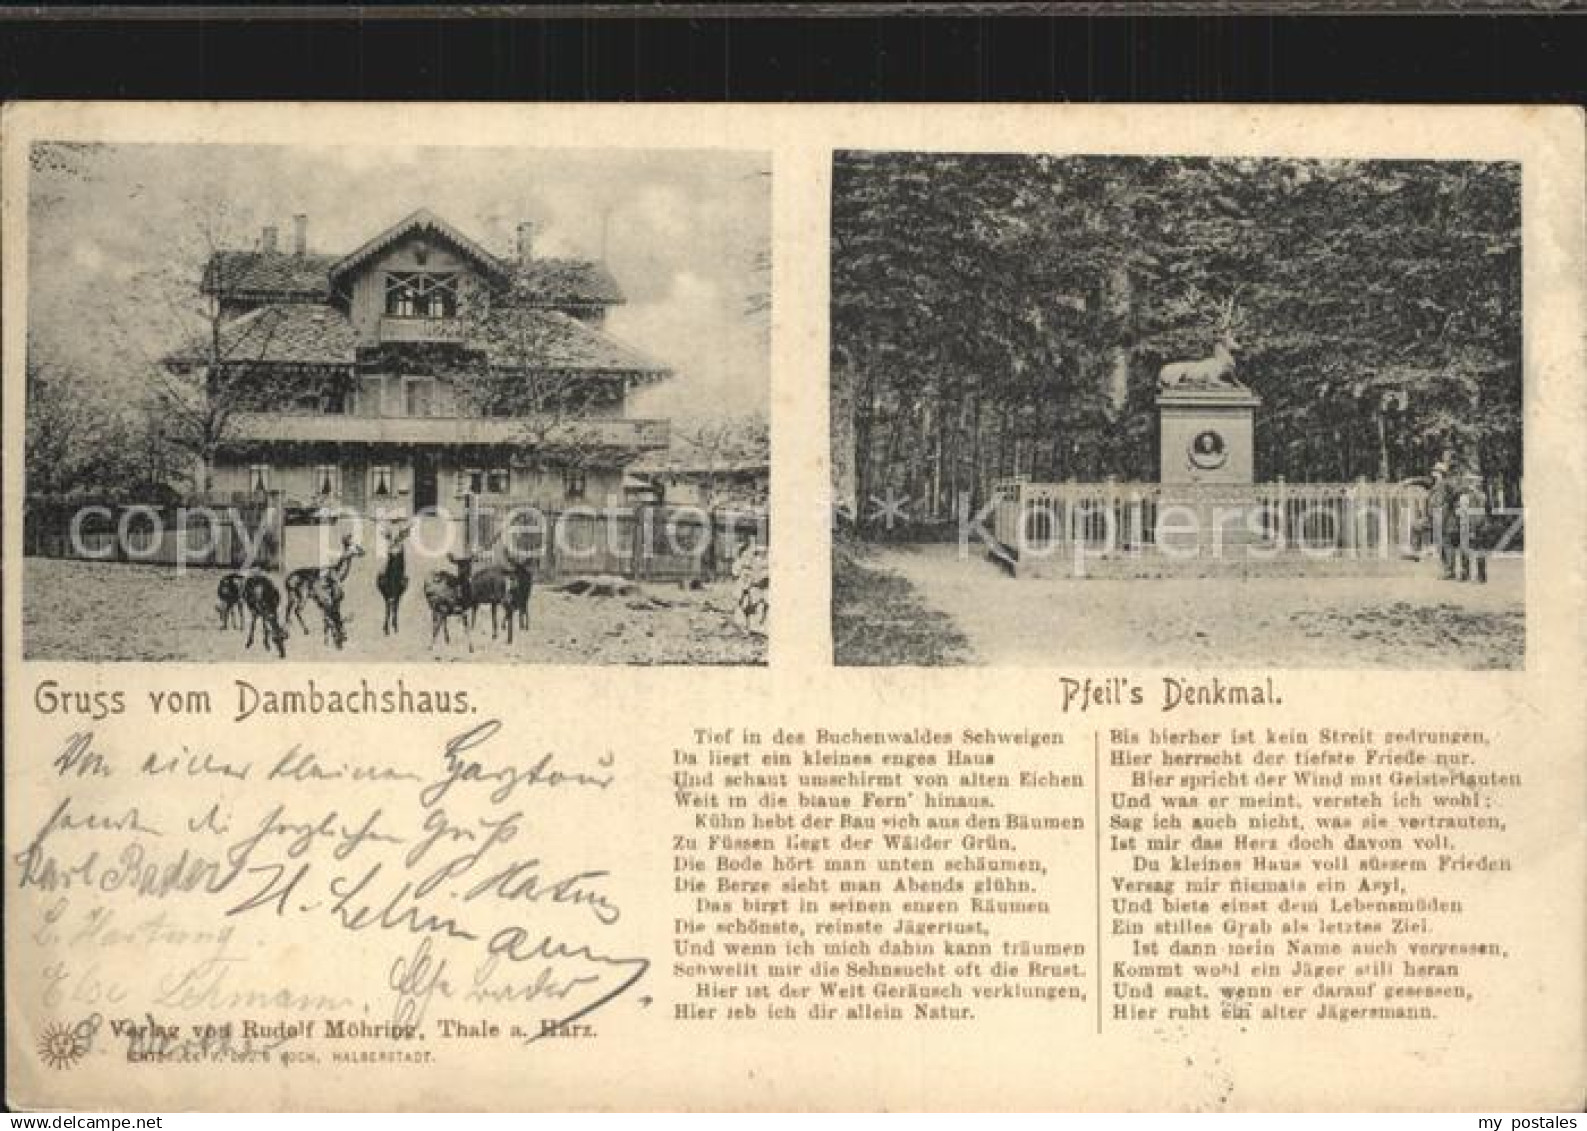 Gruss vom Dambachshaus.
Pfeil's Denkmal.
Von einer kleinen Harztour
senden die herzlichsten Grüße
Karl Bader
H. Lehmann
P. Hartung
L. Hartung.
Else Lehmann,
Else Bader
Verlag von Rudolf Möhring, Thale a. Harz.
LICHTDRUCK V. LOUIS KOCH, HALBERSTADT.
Tief in des Buchenwaldes Schweigen
Da liegt ein kleines enges Haus
Und schaut umschirmt von alten Eichen
Weit in die blaue Fern' hinaus.
Kühn hebt der Bau sich aus den Bäumen
Zu Füssen liegt der Wälder Grün,
Die Bode hört man unten schäumen,
Die Berge sieht man Abends glühn.
Das birgt in seinen engen Räumen
Die schönste, reinste Jägerlust,
Und wenn ich mich dahin kann träumen
Schwellt mir die Sehnsucht oft die Brust.
Hier ist der Welt Geräusch verklungen,
Hier leb ich dir allein Natur.
Bis hierher ist kein Streit gedrungen,
Hier herrscht der tiefste Friede nur.
Hier spricht der Wind mit Geisterlauten
Und was er meint, versteh ich wohl;
Sag ich auch nicht, was sie vertrauten,
Ist mir das Herz doch davon voll.
Du kleines Haus voll süssem Frieden
Versag mir niemals ein Asyl,
Und biete einst dem Lebensmüden
Ein stilles Grab als letztes Ziel.
Ist dann mein Name auch vergessen,
Kommt wohl ein Jäger still heran
Und sagt, wenn er darauf gesessen,
Hier ruht ein alter Jägersmann.
copy protection ** Kopierschutz
www.delcampe.net
my_postales